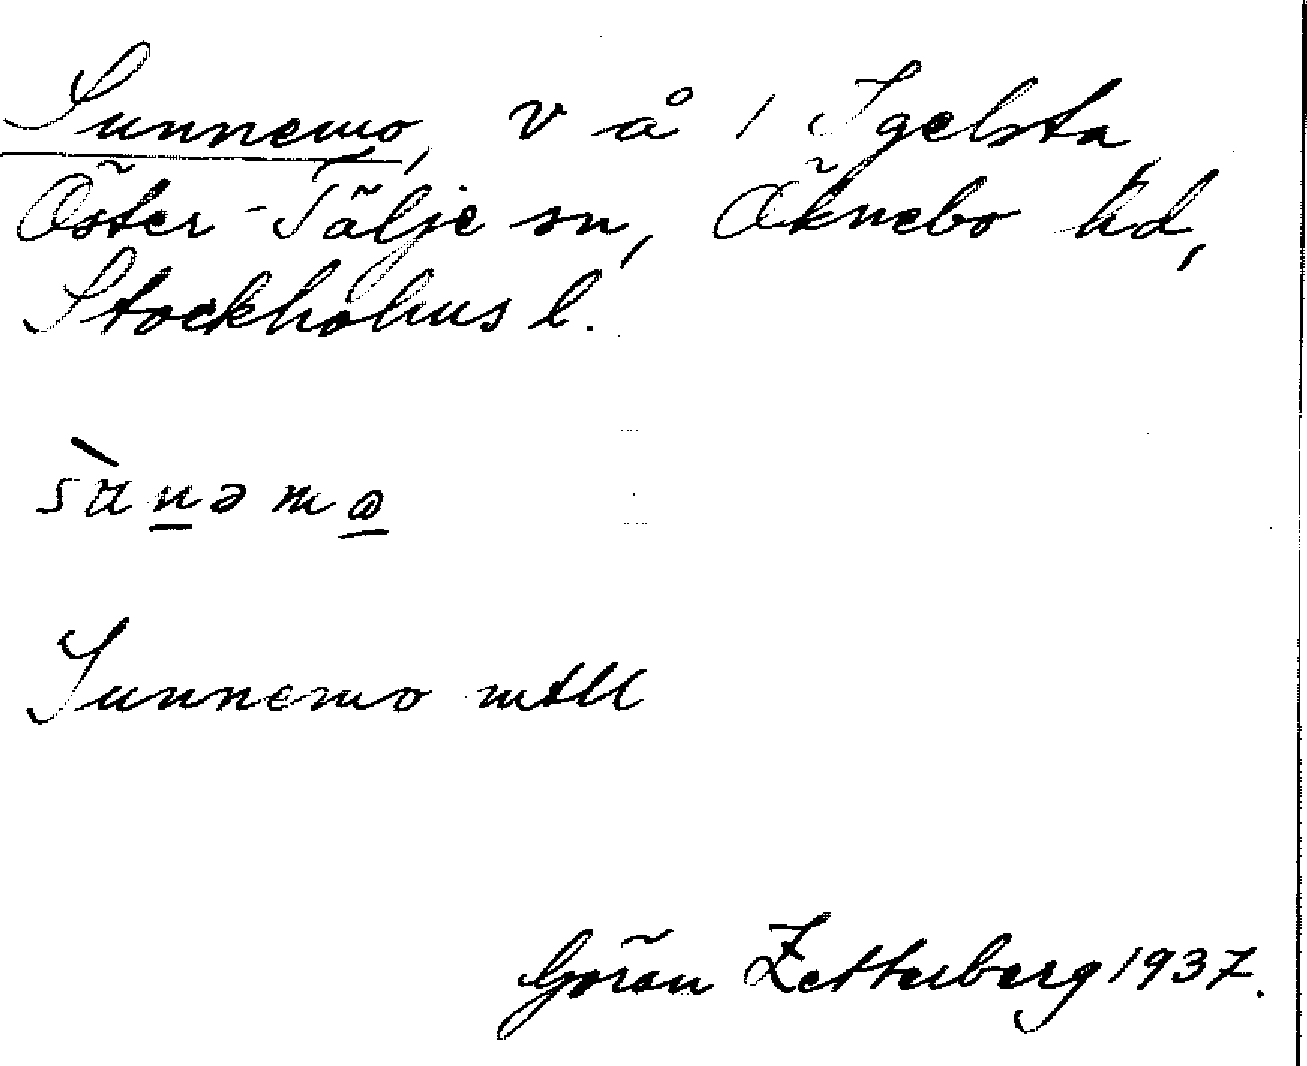 Sunnemo, v å / Igelsta,
Öster-Tälje sn, Öknebo hd,
Stockholms l.
sùnəmo
Sunnemo mtll
Göran Zetterberg 1937.